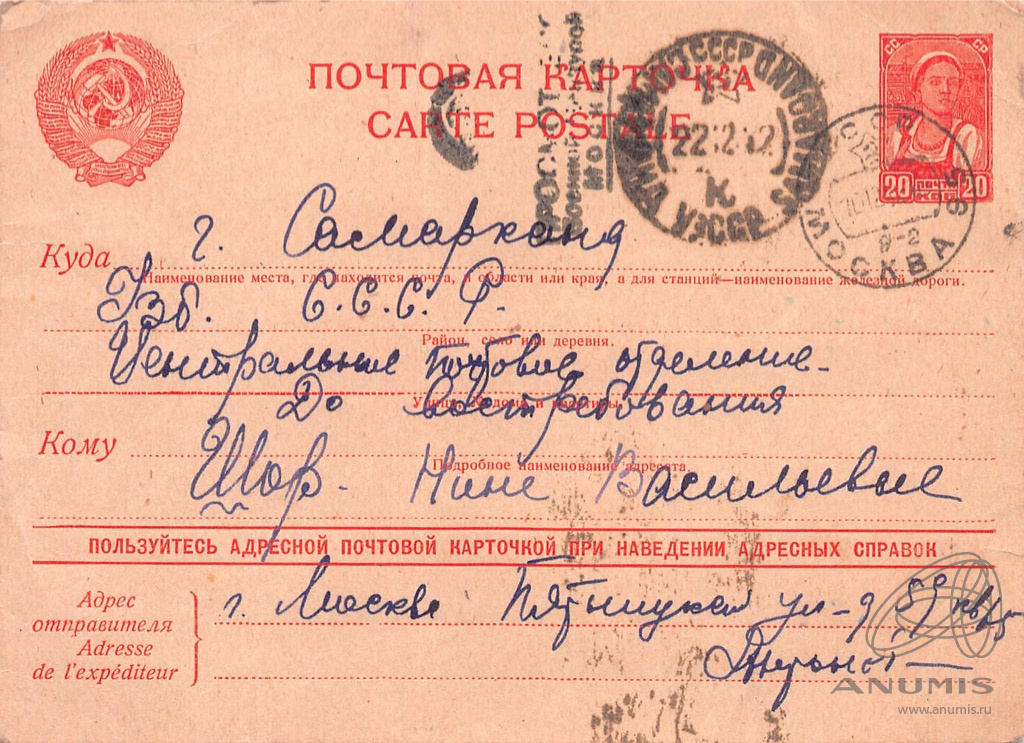 ПОЧТОВАЯ КАРТОЧКА
CARTE POSTALE
СС СР
20 ПОЧТА 20
КОП
ПРОСМОТРЕНО
Военной Цензурой
МОСКВА
САМАРКАНД УЗССР
22 12 42
К
МОСКВА 95
9-2
Куда г. Самарканд
Наименование места, где находится почта, и области или края, а для станций—наименование железной дороги.
Узб. С.С.С.Р.
Район, село или деревня.
Центральное почтовое отделение
Улица, № дома и квартиры
До востребования
Кому
Подробное наименование адресата
Шор. Нине Васильевне
ПОЛЬЗУЙТЕСЬ АДРЕСНОЙ ПОЧТОВОЙ КАРТОЧКОЙ ПРИ НАВЕДЕНИИ АДРЕСНЫХ СПРАВОК
Адрес отправителя
Adresse de l'expéditeur
г. Москва Пятницкая ул-д 59 кв
ANUMIS
www.anumis.ru